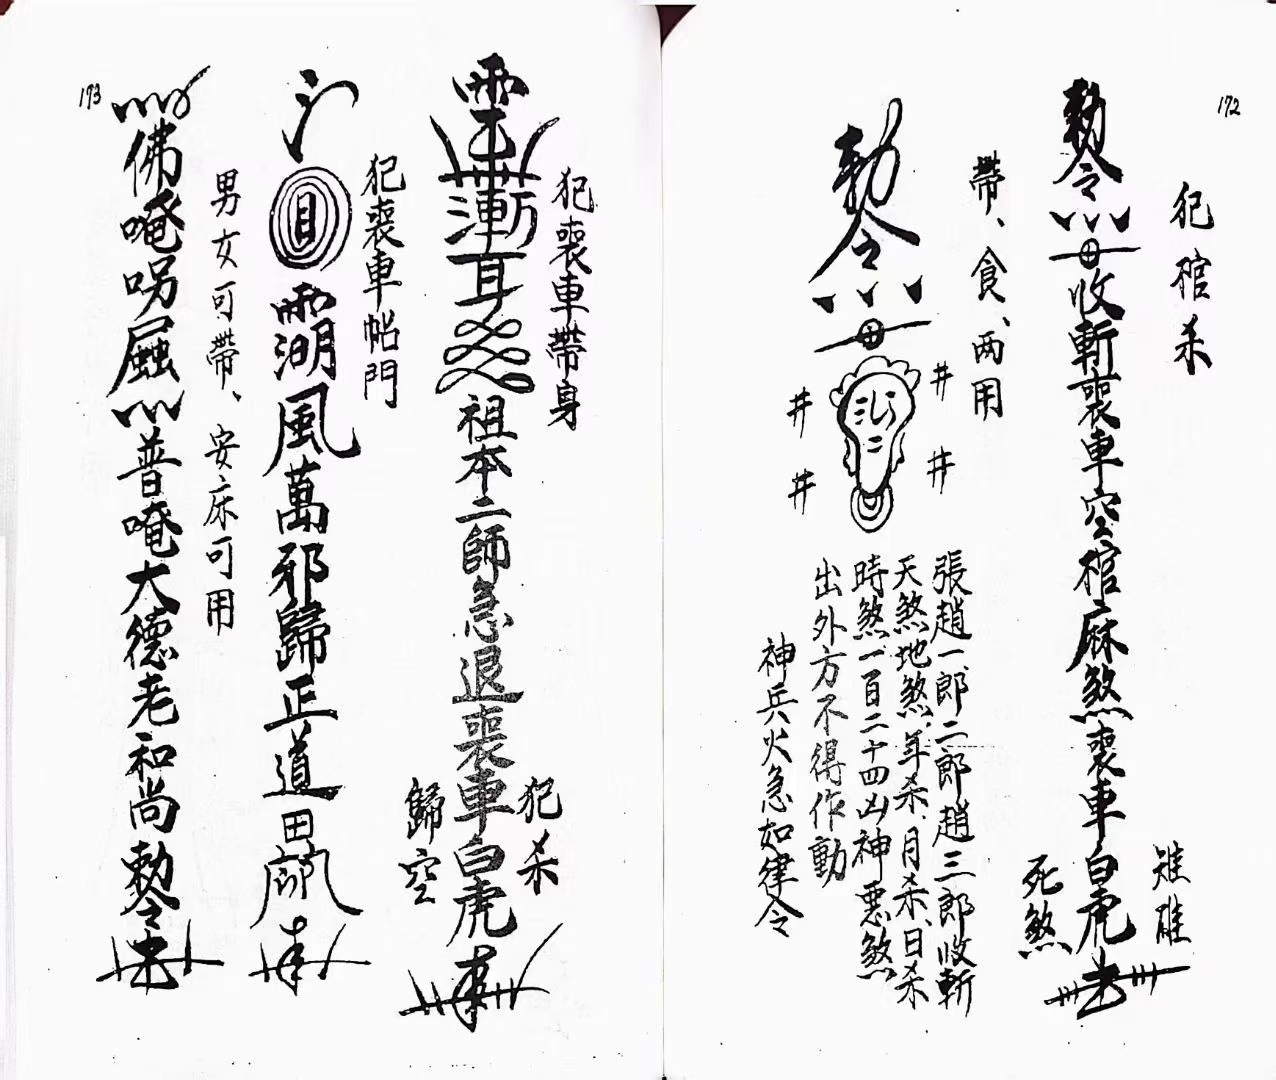 172
犯棺杀
勅令
收斬喪車空棺麻煞喪車白虎
死煞
帶、食、两用
勅令
井
井
井
井
張趙一郎二郎趙三郎收斬
天煞地煞、年杀、月杀、日杀
時煞一百二十四凶神惡煞
出外方不得作動
神兵火急如律令
犯喪車帶身
祖本二師急退喪車白虎
犯杀
歸空
犯喪車帖門
目
風萬邪歸正道
男女可帶、安床可用
佛唵
普唵大德老和尚勅令
173